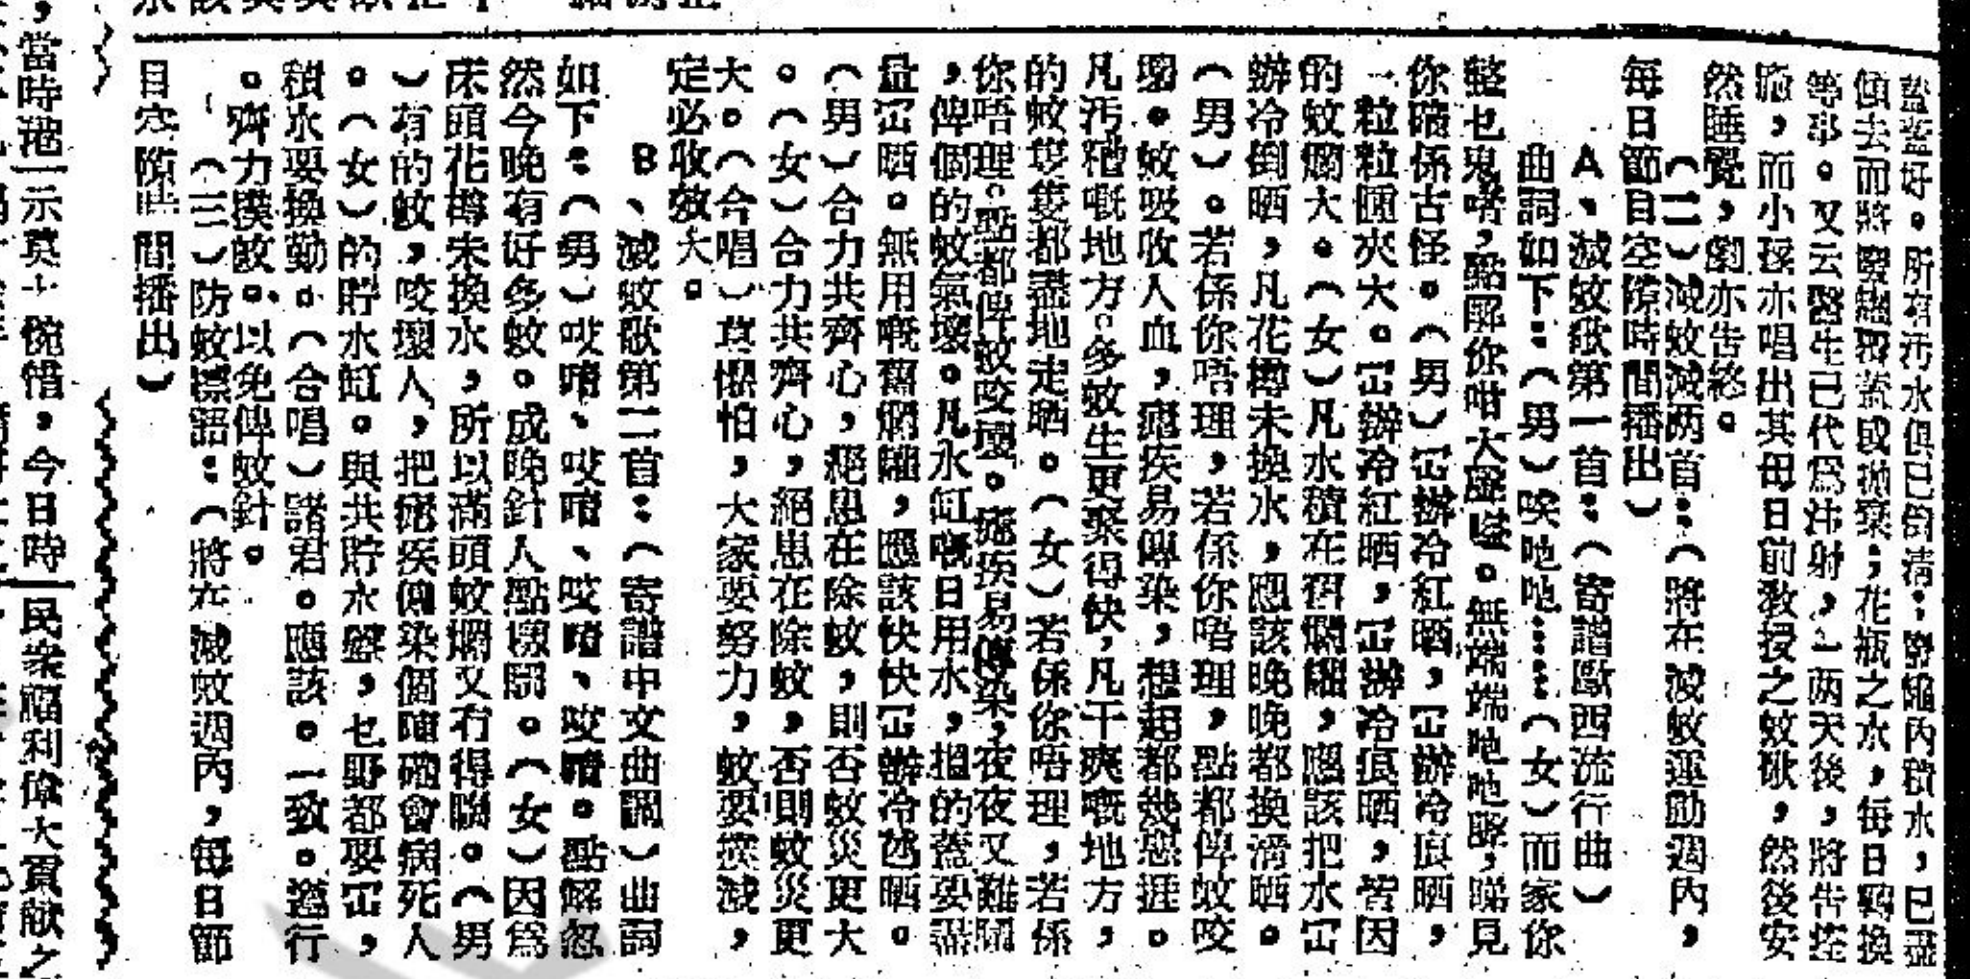 蓋蓋好。所有汚水俱已倒清；罅罐內積水，已盡
傾去而將罅罐覆蓋或拋棄；花瓶之水，每日轉換
等事。又云醫生已代爲注射，一两天後，將告痊
癒，而小孩亦唱出其母日前敎授之蚊歌，然後安
然睡覺，劇亦告終。
（二）滅蚊歌两首：（將在滅蚊運動週內，
每日節目空隙時間播出）
A、滅蚊歌第一首：（寄譜歐西流行曲）
曲詞如下：（男）唉吔吔……（女）而家你
整乜鬼啫，點解你咁大聲嗌。無端端吔吔聲，睇見
你確係古怪。（男）冚辦冷紅晒，冚辦冷痕晒，
一粒粒腫夾大。冚辦冷紅晒，冚辦冷痕晒，皆因
的蚊爛大。（女）凡水積在罅爛罐，應該把水冚
辦冷倒晒，凡花樽未換水，應該晚晚都換淸晒。
（男）。若係你唔理，若係你唔理，點都俾蚊咬
壞。蚊吸收人血，瘧疾易傳染，想起都幾惡捱。
凡汚糟嘅地方。多蚊生更聚得快，凡干爽嘅地方，
的蚊隻隻都盡地走晒。（女）若係你唔理，若係
你唔理。點都俾蚊咬壞。瘧疾易傳染，夜夜又難瞓
，俾個的蚊氣壞。凡水缸嘅日用水，揾的蓋要盡
量冚晒。無用嘅舊爛罐，應該快快冚辦冷氹晒。
（男）合力共齊心，絕患在除蚊，則否蚊災更大
。（女）合力共齊心，絕患在除蚊，否則蚊災更
大。（合唱）莫懼怕，大家要努力，蚊要撲滅，
定必收效大。
B、滅蚊歌第二首：（寄譜中文曲調）曲詞
如下：（男）哎唷、哎唷、哎唷、哎唷。點解忽
然今晚有好多蚊。成晚針人點樣瞓。（女）因爲
床頭花樽未換水，所以滿頭蚊爛又冇得瞓。（男
）有的蚊，咬壞人，把瘧疾傳染個陣確會病死人
。（女）的貯水缸。與共貯水盤，乜野都要冚，
積水要換勤。（合唱）諸君。應該。一致。遵行
。齊力撲蚊。以免俾蚊針。
（三）防蚊標語：（將在滅蚊週內，每日節
目空隙時間播出）
，當時港
示莫大惋惜，今日時
民衆福利偉大貢献之